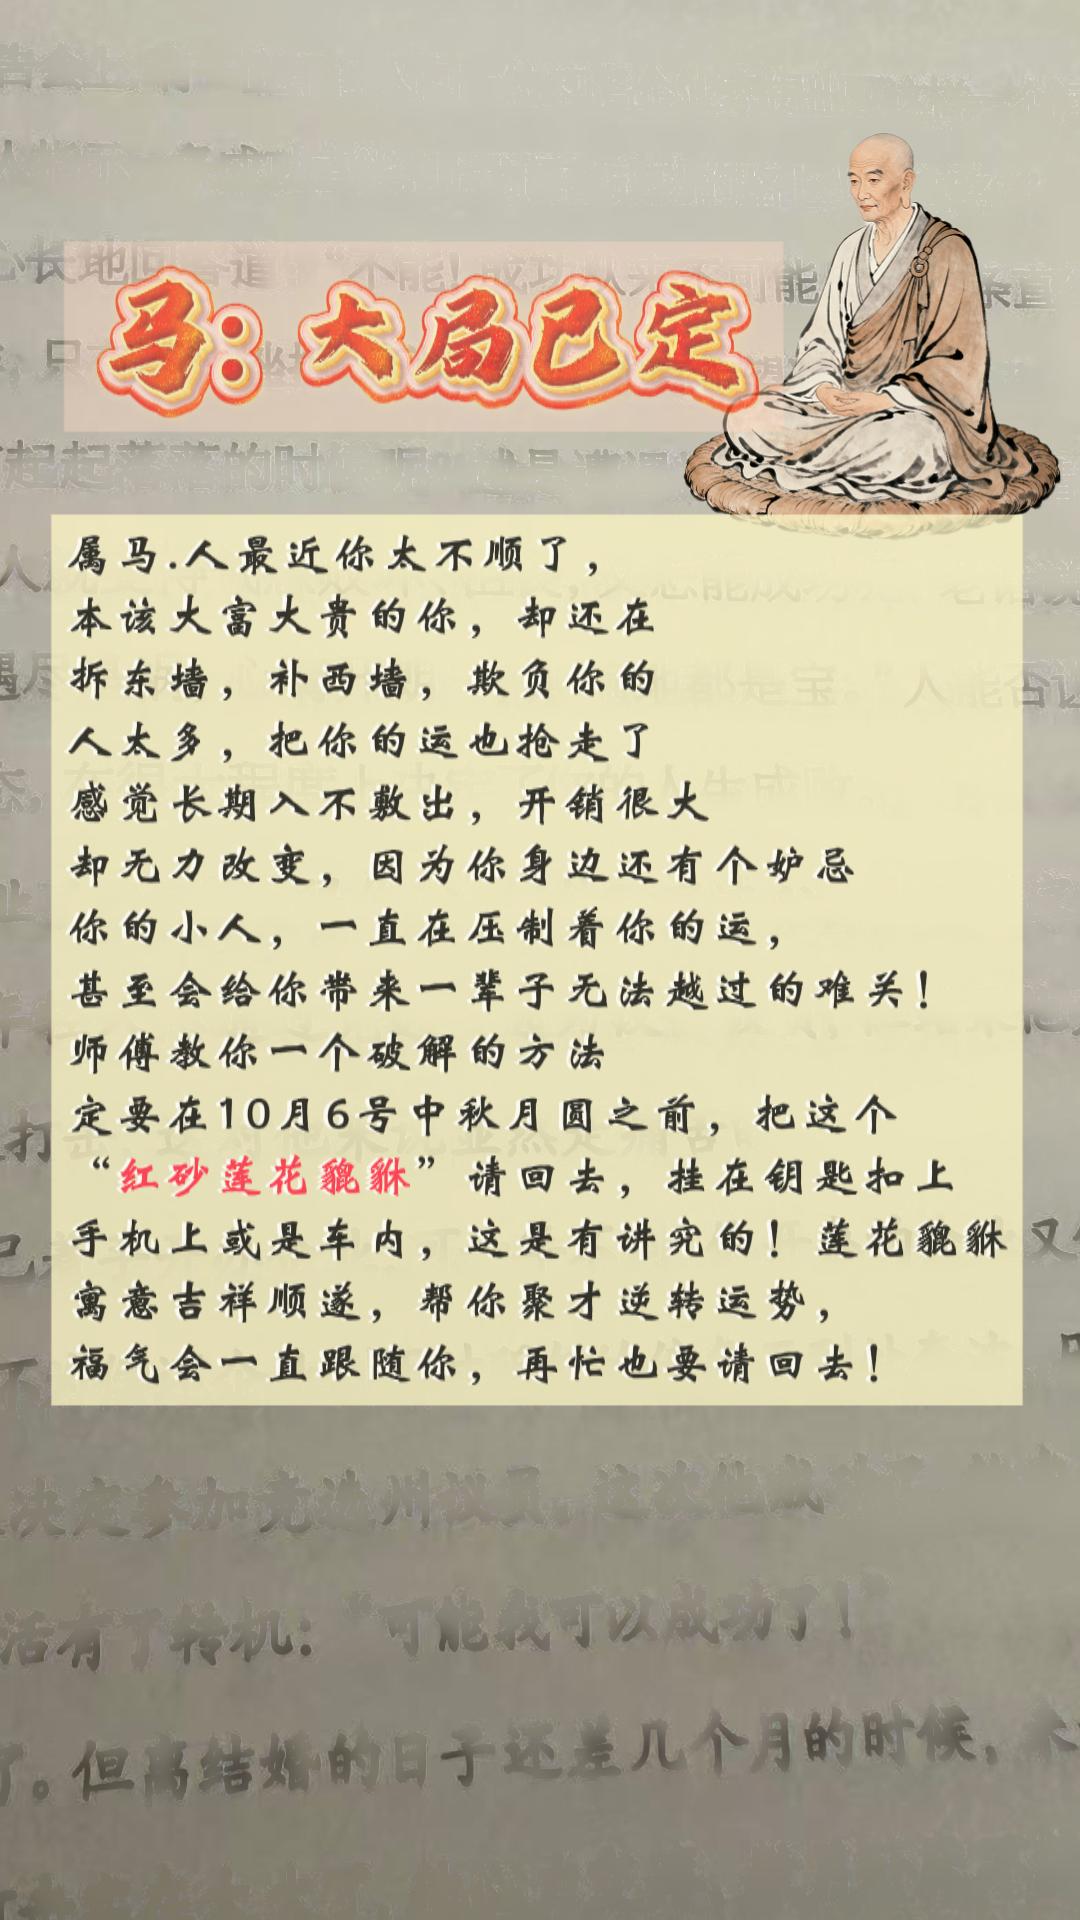 马：大局已定
属马.人最近你太不顺了，
本该大富大贵的你，却还在
拆东墙，补西墙，欺负你的
人太多，把你的运也抢走了
感觉长期入不敷出，开销很大
却无力改变，因为你身边还有个妒忌
你的小人，一直在压制着你的运，
甚至会给你带来一辈子无法越过的难关！
师傅教你一个破解的方法
定要在10月6号中秋月圆之前，把这个
“红砂莲花貔貅”请回去，挂在钥匙扣上
手机上或是车内，这是有讲究的！莲花貔貅
寓意吉祥顺遂，帮你聚才逆转运势，
福气会一直跟随你，再忙也要请回去！
决定参加竞选州议员，这次他成功了
活有了转机：“可能我可以成功了！”
了。但离结婚的日子还差几个月的时候，